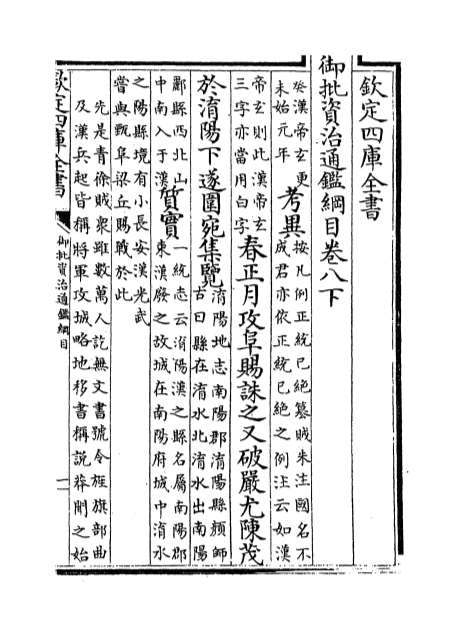 欽定四庫全書
御批資治通鑑綱目卷八下
癸漢帝玄更
未始元年
考異
按凡例正統已絕篡賊朱注國名不
成君亦依正統已絕之例注云如漢
帝玄則此漢帝玄
三字亦當用白字
春正月攻阜賜誅之又破嚴尤陳茂
於淯陽下遂圍宛集覽
淯陽地志南陽郡淯陽縣顏師
古曰縣在淯水北淯水出南陽
酈縣西北山
中南入于漢
質實
一統志云淯陽漢之縣名屬南陽郡
東漢廢之故城在南陽府城中淯水
之陽縣境有小長安漢光武
嘗與甄阜梁丘賜戰於此
先是青徐賊衆雖數萬人訖無文書號令旌旗部曲
及漢兵起皆稱將軍攻城略地移書稱說莽聞之始
欽定四庫全書
御批資治通鑑綱目
一